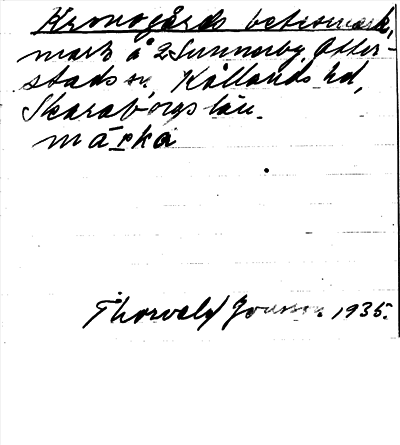 Kronogårds betesmark,
mark å 2 Sunnersby, Otter-
stads sn, Kållands hd,
Skaraborgs län.
märka
Thorvald Jonsson. 1935.